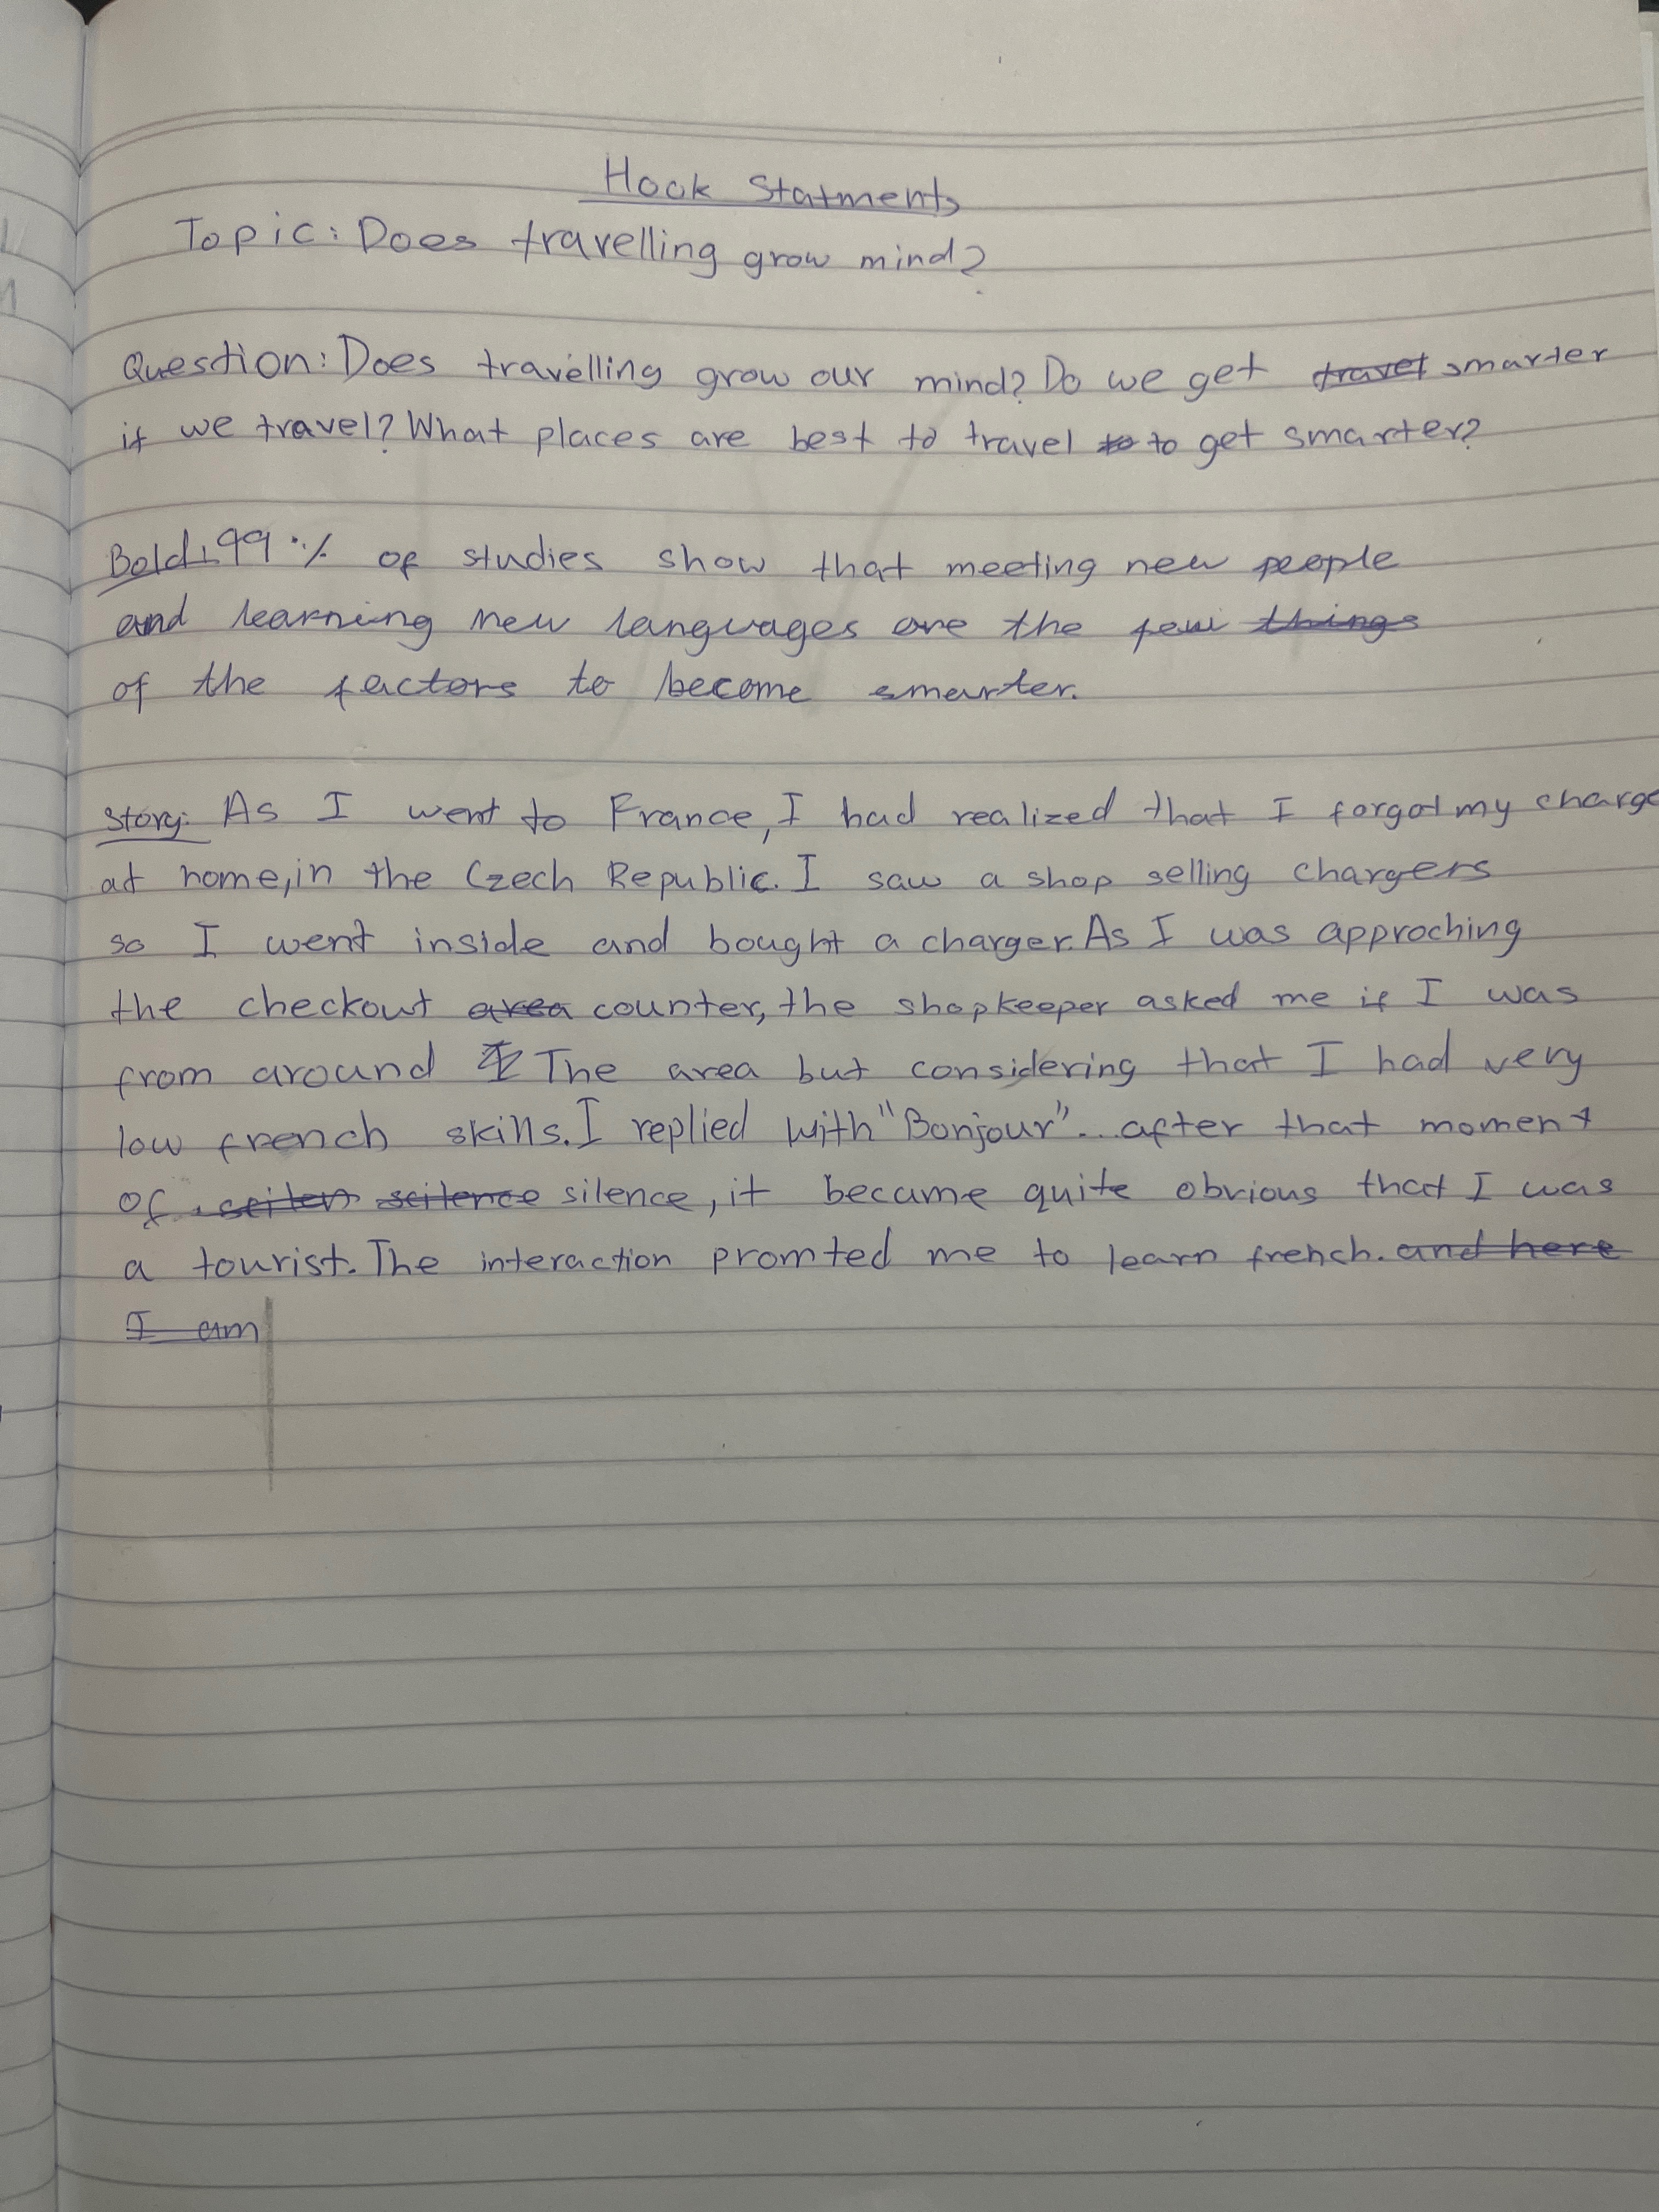 Hook Statments
Topic: Does travelling grow mind?
Question: Does travelling grow our mind? Do we get travel smarter
if we travel? What places are best to travel to to get smarter?
Bold: 99 % of studies show that meeting new people
and learning new languages are the few things
of the factors to become smarter.
Story: As I went to France, I had realized that I forgot my charge
at home, in the Czech Republic. I saw a shop selling chargers
so I went inside and bought a charger. As I was approching
the checkout area counter, the shopkeeper asked me if I was
from around The area but considering that I had very
low french skills. I replied with "Bonjour"... after that moment
of silence, it became quite obvious that I was
a tourist. The interaction promted me to learn french. and here
I am